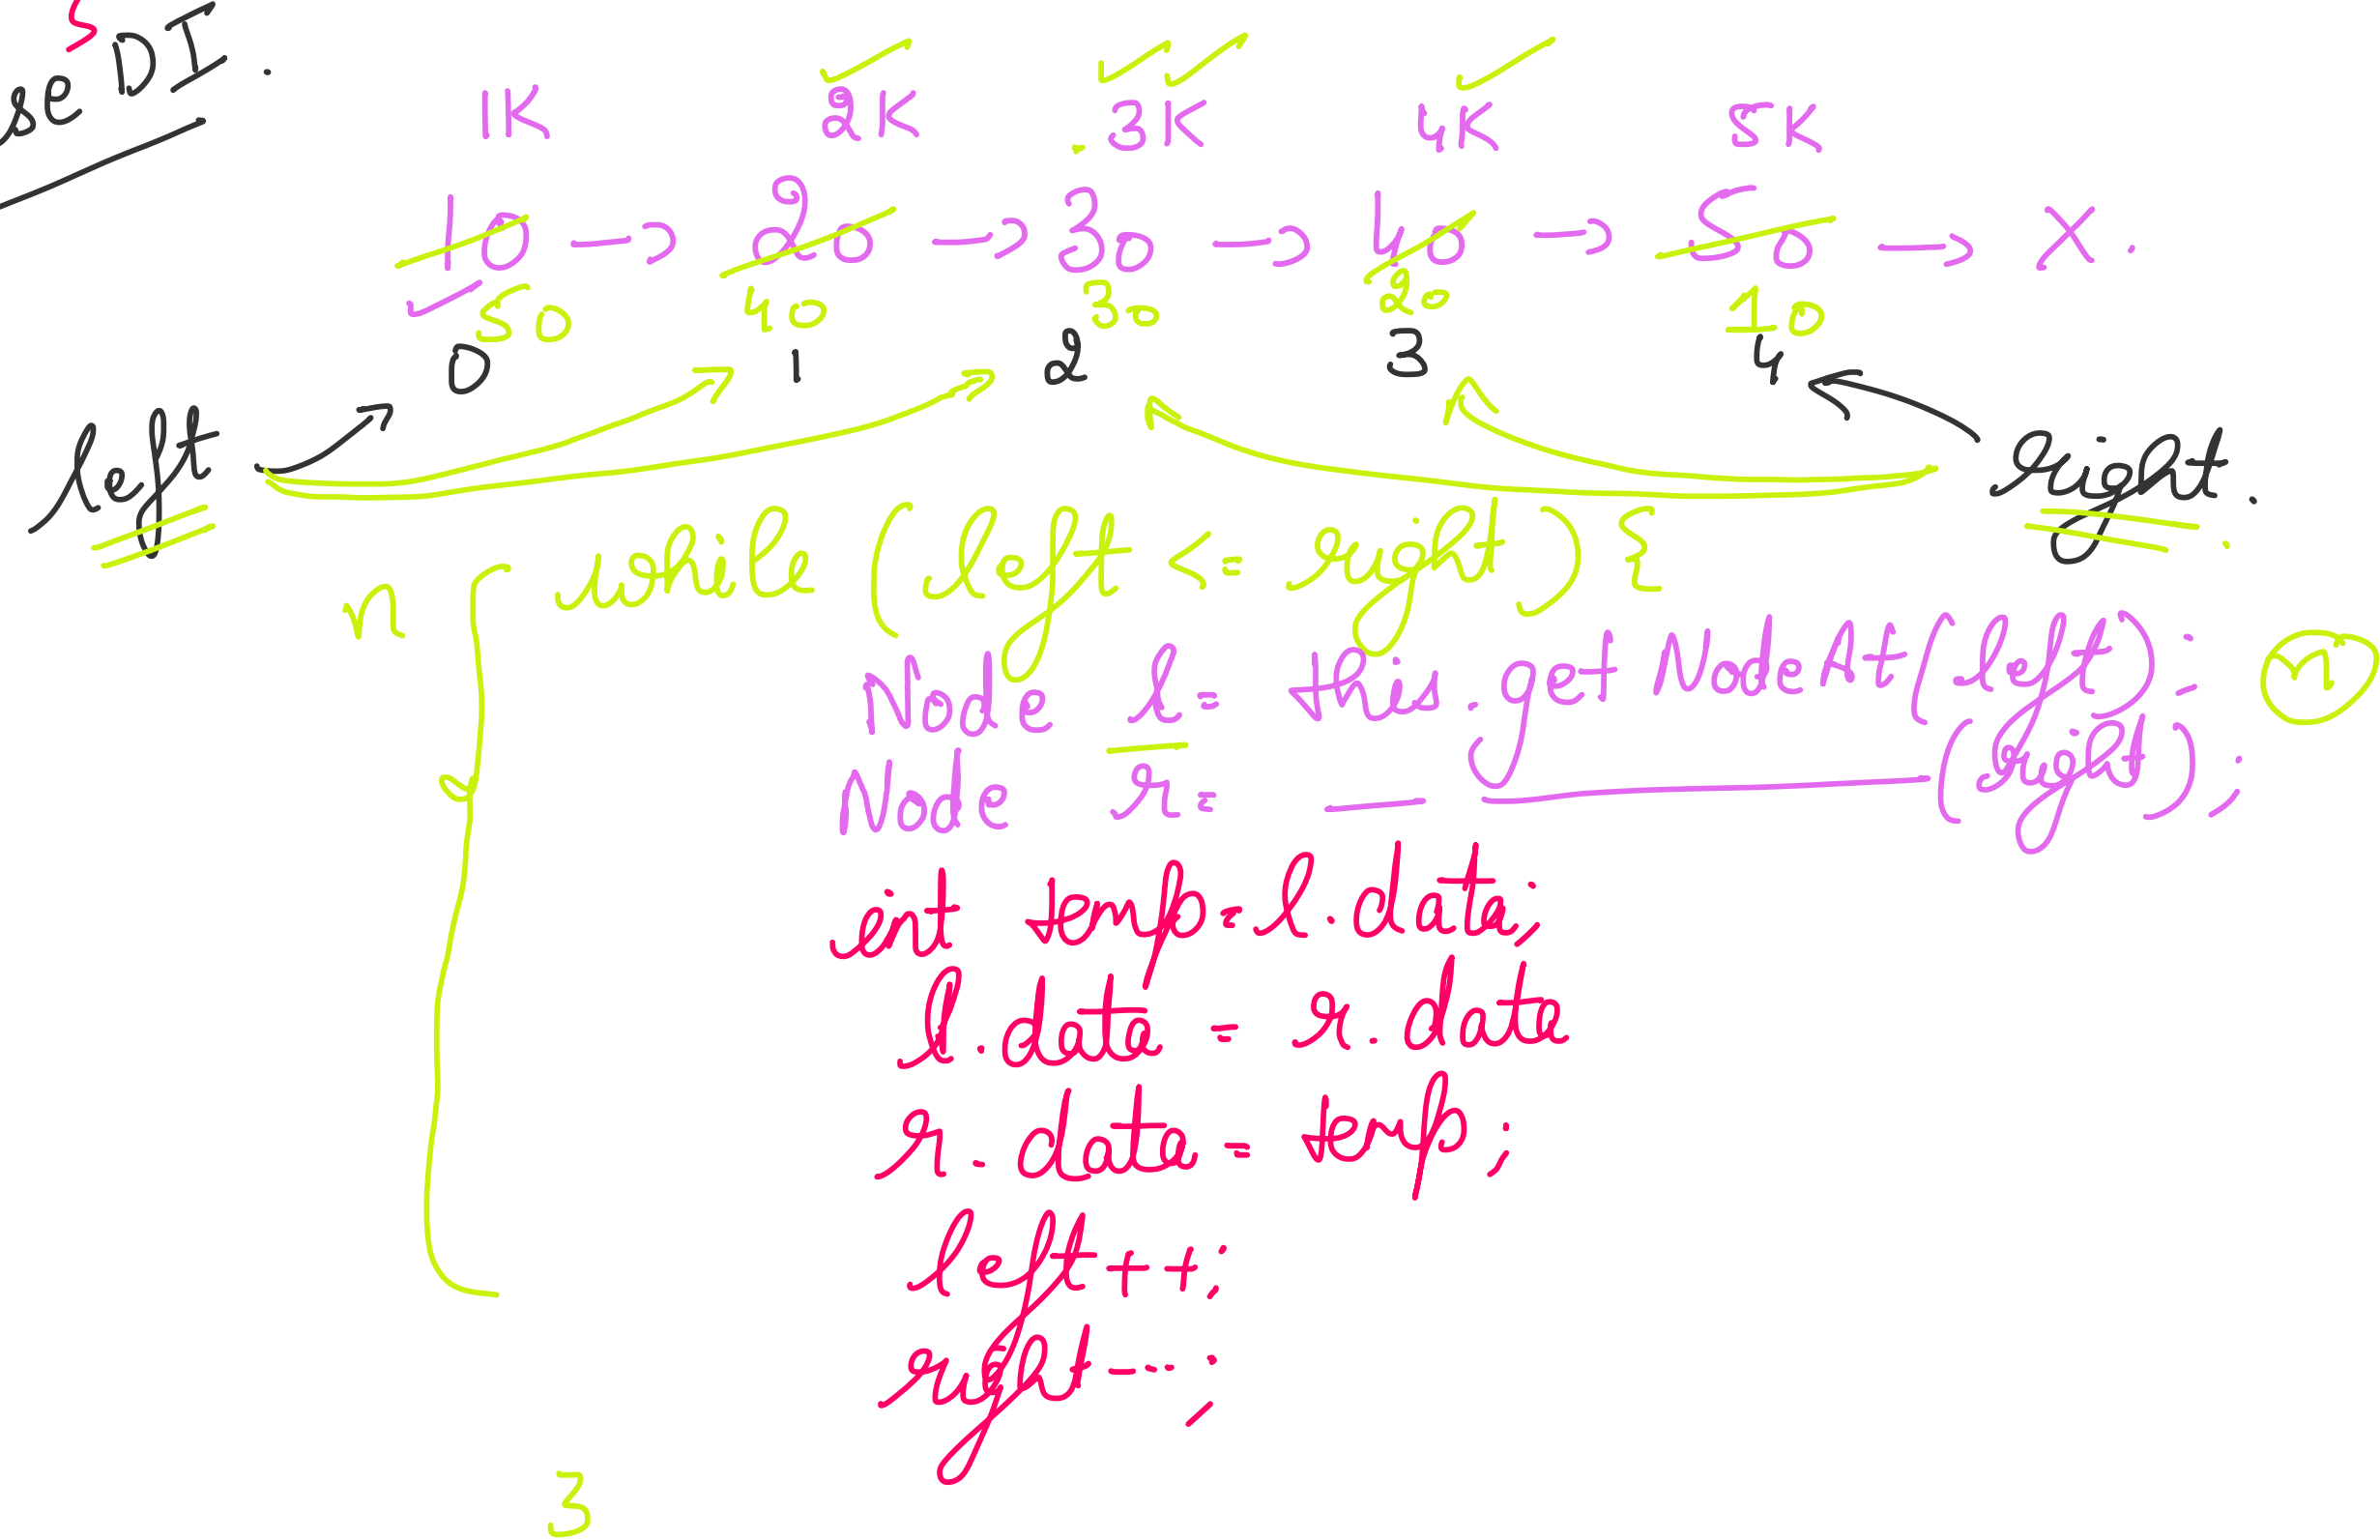 se DI.
1K 2K 3K 4K 5K
10 -> 20 -> 30 -> 40 -> 50 -> X.
50 40 30 20 10
0 1 2 3 4
left right.
n while (left <= right) {
Node l = this.getNodeAt(left);
n
Node r = (right);
int temp = l.data;
l.data = r.data
r.data = temp;
left++;
right--;
}